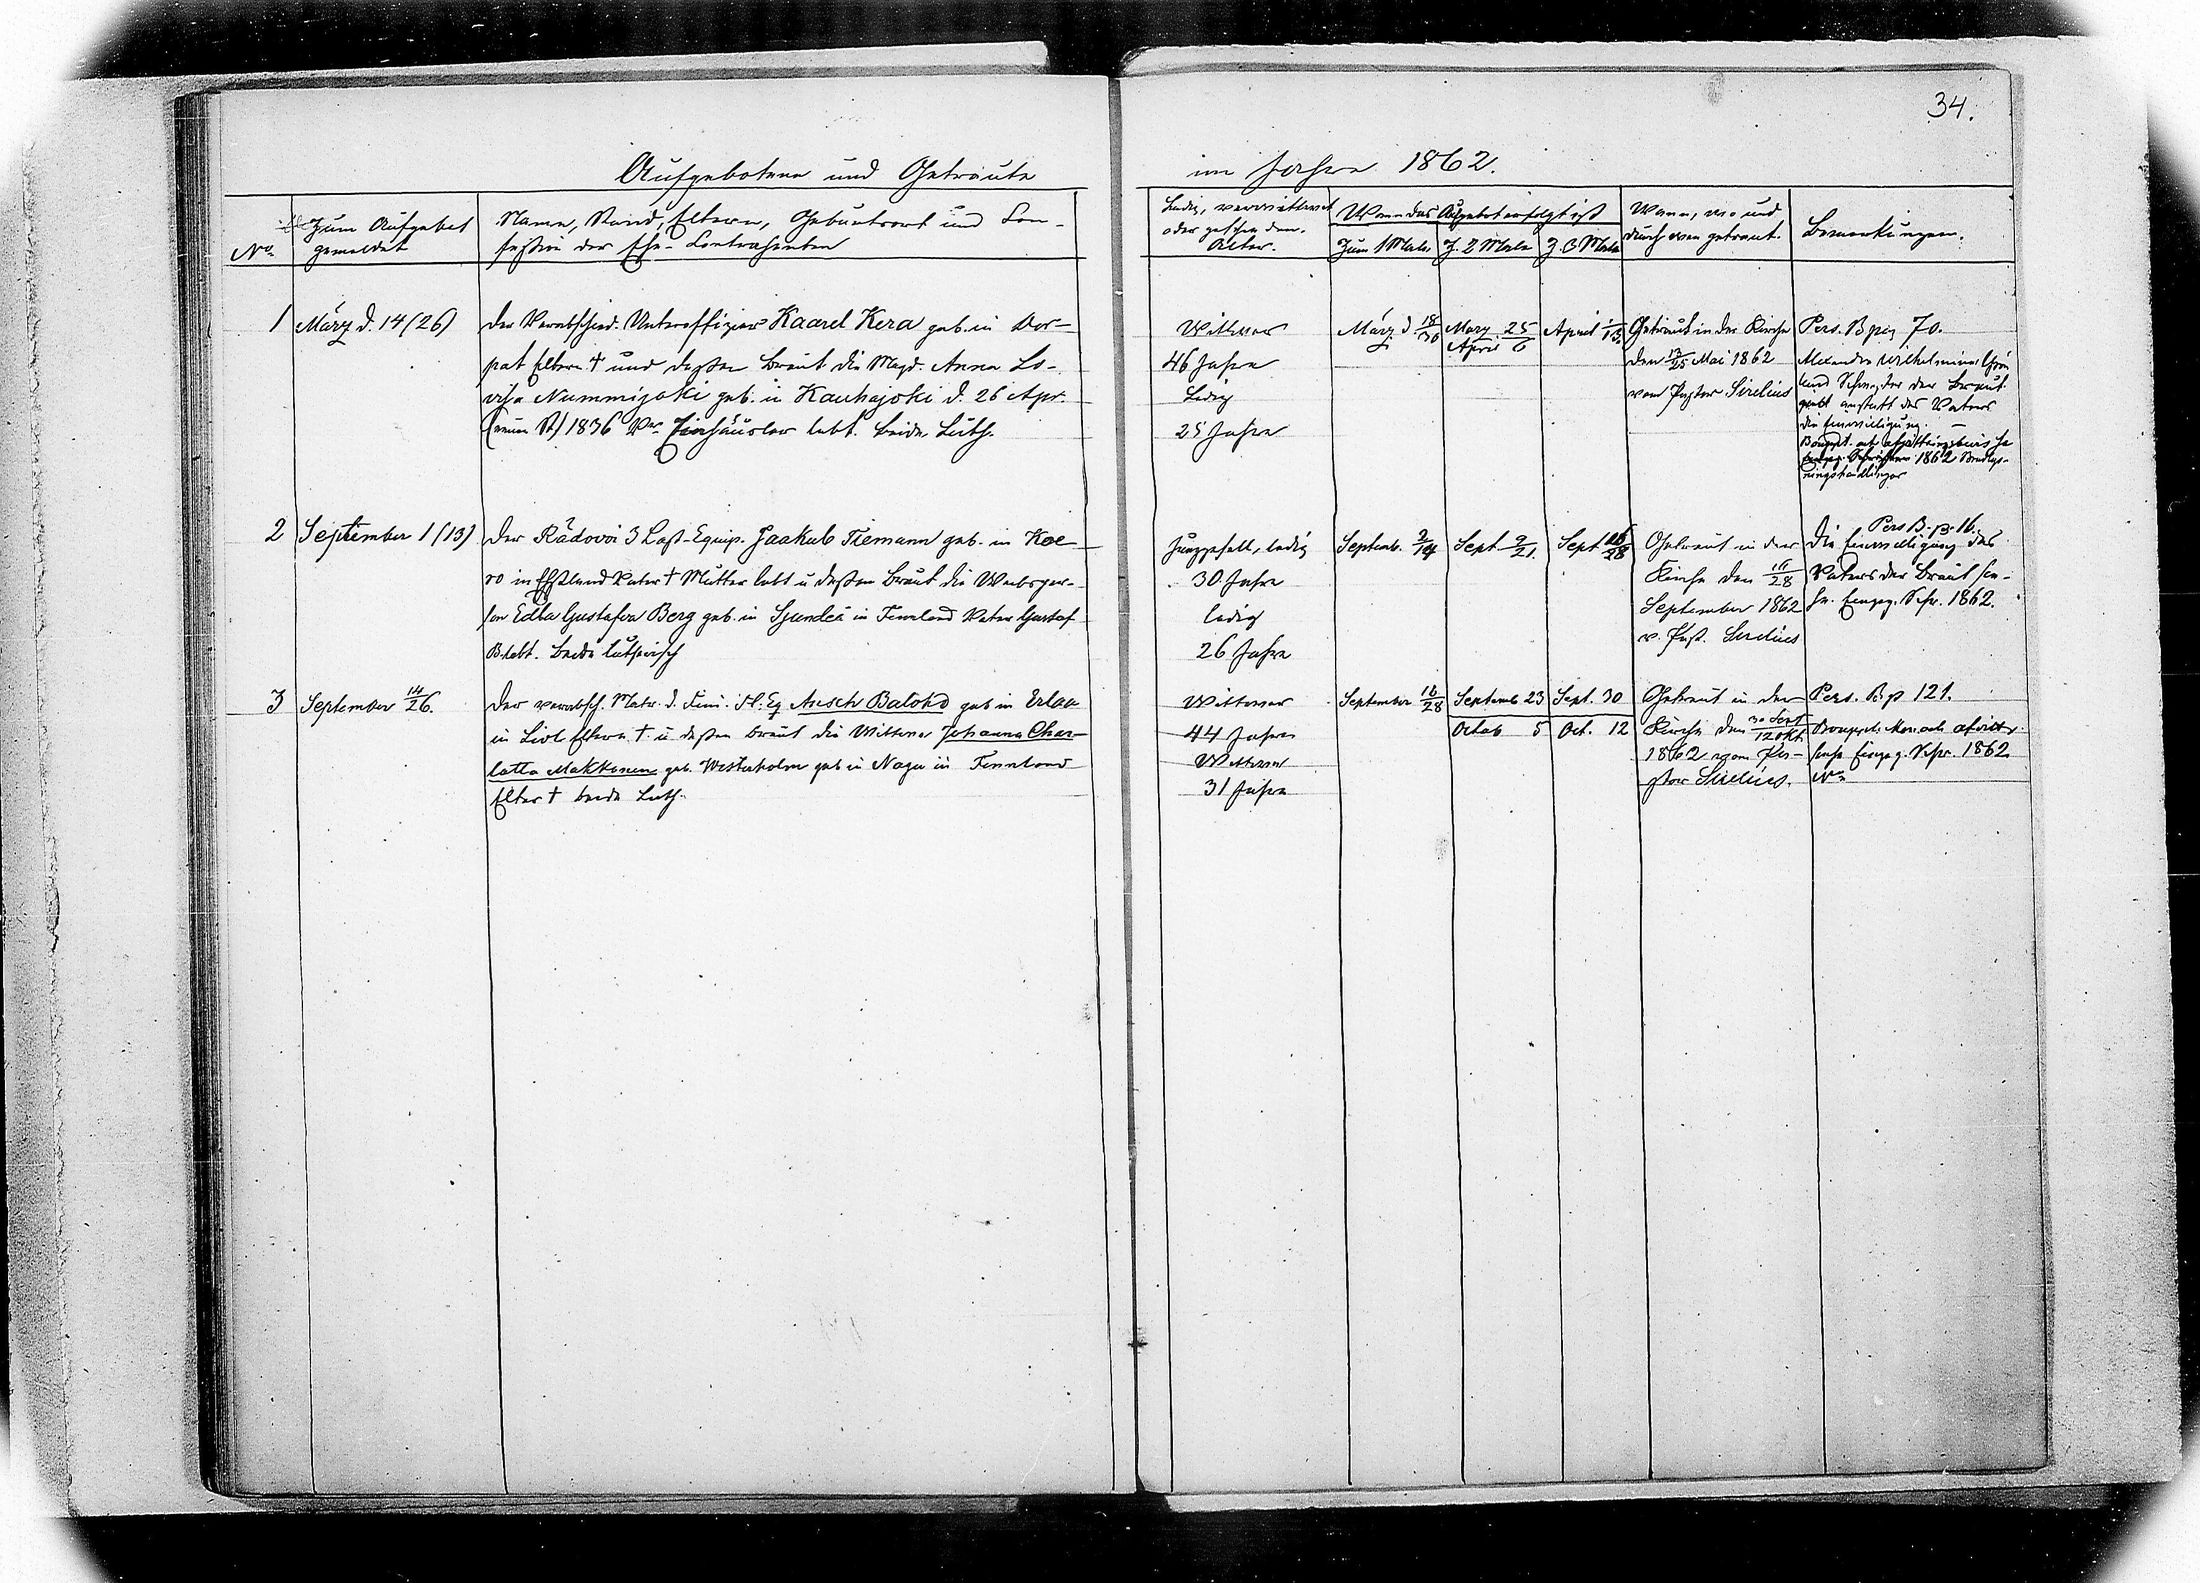 34.
Aufgebotene und Getraute im Jahre 1862.
No.
Zum Aufgebot
gemeldet
Name, Stand, Eltern, Geburtsort und Con-
fession der Ehe-Contrahenten
Ledig, verwittwet
oder geschieden.
Alter.
Wann das Aufgebot erfolgt ist
Zum 1 Male. Z. 2 Male Z. 3 Male
Wann, wo und
durch wen getraut.
Bemerkungen.
1
März d. 14 (26)
Der Verabschied. Unteroffizier Kaarel Kera geb. in Dor-
pat Eltern † und dessen Braut die Magd. Anna Lo-
visa Nummijoki geb. in Kauhajoki d. 26 Apr.
(neuen St) 1836 Va. Einhäusler lebt. beide Luth.
Wittwer
46 Jahre
Ledig
25 Jahre
März d 18/30
März 25
April 6
April 1/13.
Getraut in der Kirche
den 13/25 Mai 1862
vom Pastor Sirelius
Pers. B pag 70.
Alexandra Wilhelmina
Schwester der Braut
giebt anstatt des Vaters
die Einwilligung. —
1862
2
September 1 (13)
Der Rädovoi 3 Last-Equip. Jaakub Tiemann geb. in Koe-
ro in Ehstland Vater † Mutter lebt u dessen Braut die Weibsper-
son Edla Gustafva Berg geb. in Sjundeå in Finnland Vater Gustaf
B. lebt. beide lutherisch
Junggesell, ledig
30 Jahre
ledig
26 Jahre
Septemb. 2/14
Sept 9/21.
Sept 16/28
Getraut in der
Kirche den 16/28
September 1862
v. Past. Sirelius
Pers B. p. 16.
Die Einwilligung des
Vaters der Braut sie-
he Eingeg. Schr. 1862.
3
September 14/26.
Der verabsch. Matr. d. Finn. Fl. Eq Ansch Balohd geb in Erlaa
in Livl. Eltern † u dessen Braut die Wittwe Johanna Char-
lotta Makkonen geb. Westerholm geb in Nagu in Finnland
Elter † beide Luth.
Wittwer
44 Jahre
Wittwe
31 Jahre
September 16/28
Septemb 23
Octob 5
Sept. 30
Oct. 12
Getraut in der
Kirche den 30 Sept/12 Okt
1862 vom Pa-
stor Sirelius.
Pers. B p 121.
siehe Eingeg. Schr. 1862
No